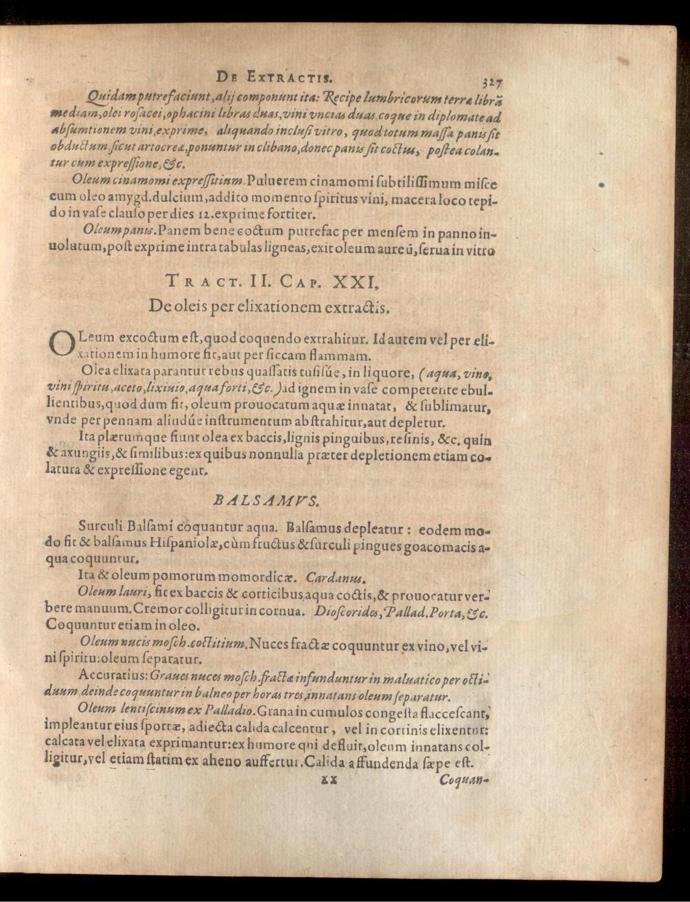 DE EXTRACTIS. 327
Quidam putrefaciunt, alij componunt ita: Recipe lumbricorum terræ librã
mediam, olei rosacei, ophacini libras duas, vini vncias duas, coque in diplomate ad
absumtionem vini, exprime, aliquando inclusi vitro, quod totum massa panis sit
obductum, sicut artocreæ, ponuntur in clibano, donec panis sit coctus, postea colan-
tur cum expressione, &c.
Oleum cinamomi expressitium. Puluerem cinamomi subtilissimum misce
cum oleo amygd. dulcium, addito momento spiritus vini, macera loco tepi-
do in vase clauso per dies 12. exprime fortiter.
Oleum panis. Panem bene coctum putrefac per mensem in panno in-
uolutum, post exprime intra tabulas ligneas, exit oleum aureũ, serua in vitro
TRACT. II. CAP. XXI.
De oleis per elixationem extractis.
OLeum excoctum est, quod coquendo extrahitur. Id autem vel per eli-
xationem in humore fit, aut per siccam flammam.
Olea elixata parantur rebus quassatis tusisúe, in liquore, (aqua, vino,
vini spiritu, aceto, lixiuio, aqua forti, &c.) ad ignem in vase competente ebul-
lientibus, quod dum fit, oleum prouocatum aquæ innatat, & sublimatur,
vnde per pennam aliudúe instrumentum abstrahitur, aut depletur.
Ita plærumque fiunt olea ex baccis, lignis pinguibus, resinis, &c. quin
& axungiis, & similibus: ex quibus nonnulla præter depletionem etiam co-
latura & expressione egent.
BALSAMVS.
Surculi Balsami coquantur aqua. Balsamus depleatur: eodem mo-
do fit & balsamus Hispaniolæ, cùm fructus & surculi pingues goacomacis a-
qua coquuntur.
Ita & oleum pomorum momordicæ. Cardanus.
Oleum lauri, fit ex baccis & corticibus aqua coctis, & prouocatur ver-
bere manuum. Cremor colligitur in cornua. Dioscorides, Pallad. Porta, &c.
Coquuntur etiam in oleo.
Oleum nucis mosch. coctitium. Nuces fractæ coquuntur ex vino, vel vi-
ni spiritu: oleum separatur.
Accuratius: Graues nuces mosch. fractæ infunduntur in maluatico per octi-
duum, deinde coquuntur in balneo per horas tres, innatans oleum separatur.
Oleum lentiscinum ex Palladio. Grana in cumulos congesta flaccescant,
impleantur eius sportæ, adiecta calida calcentur, vel in cortinis elixentur:
calcata vel elixata exprimantur: ex humore qui defluit, oleum innatans col-
ligitur, vel etiam statim ex aheno auffertur. Calida affundenda sæpe est.
XX Coquan-